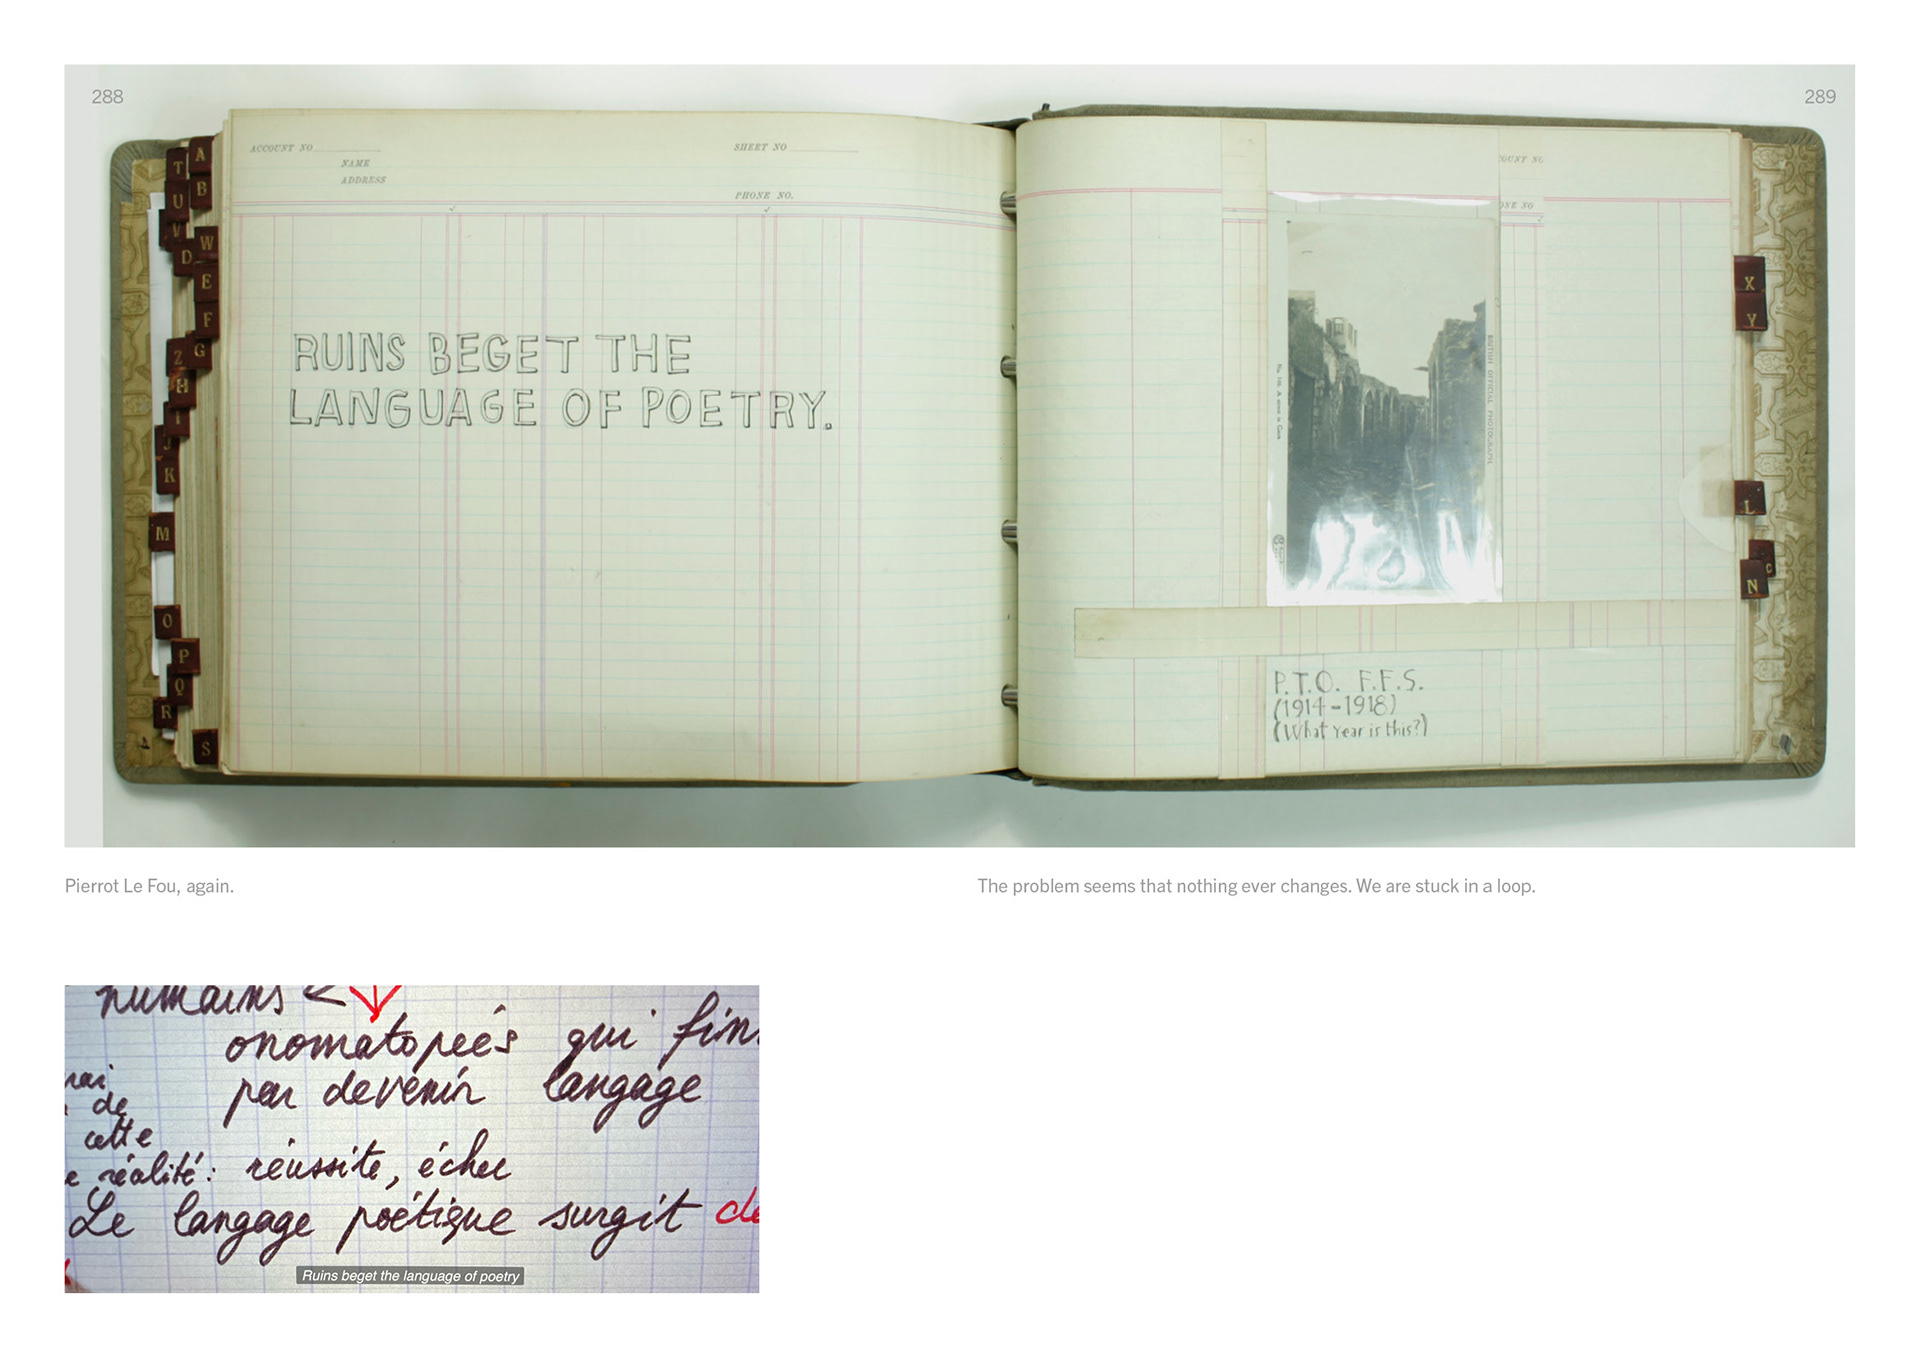 288
289
ACCOUNT NO
SHEET NO
NAME
ADDRESS
PHONE NO.
A
T
B
U
V
W
D
E
F
G
Z
H
I
J
K
M
O
P
Q
R
S
RUINS BEGET THE
LANGUAGE OF POETRY.
OUNT NO
ONE NO
BRITISH OFFICIAL PHOTOGRAPH.
X
Y
L
C
N
P.T.O. F.F.S.
(1914-1918)
(What Year is this?)
Pierrot Le Fou, again.
The problem seems that nothing ever changes. We are stuck in a loop.
humains
onomatopées qui fin
par devenir langage
de
cette
réalité: réussite, échec
Le langage poétique surgit de
Ruins beget the language of poetry